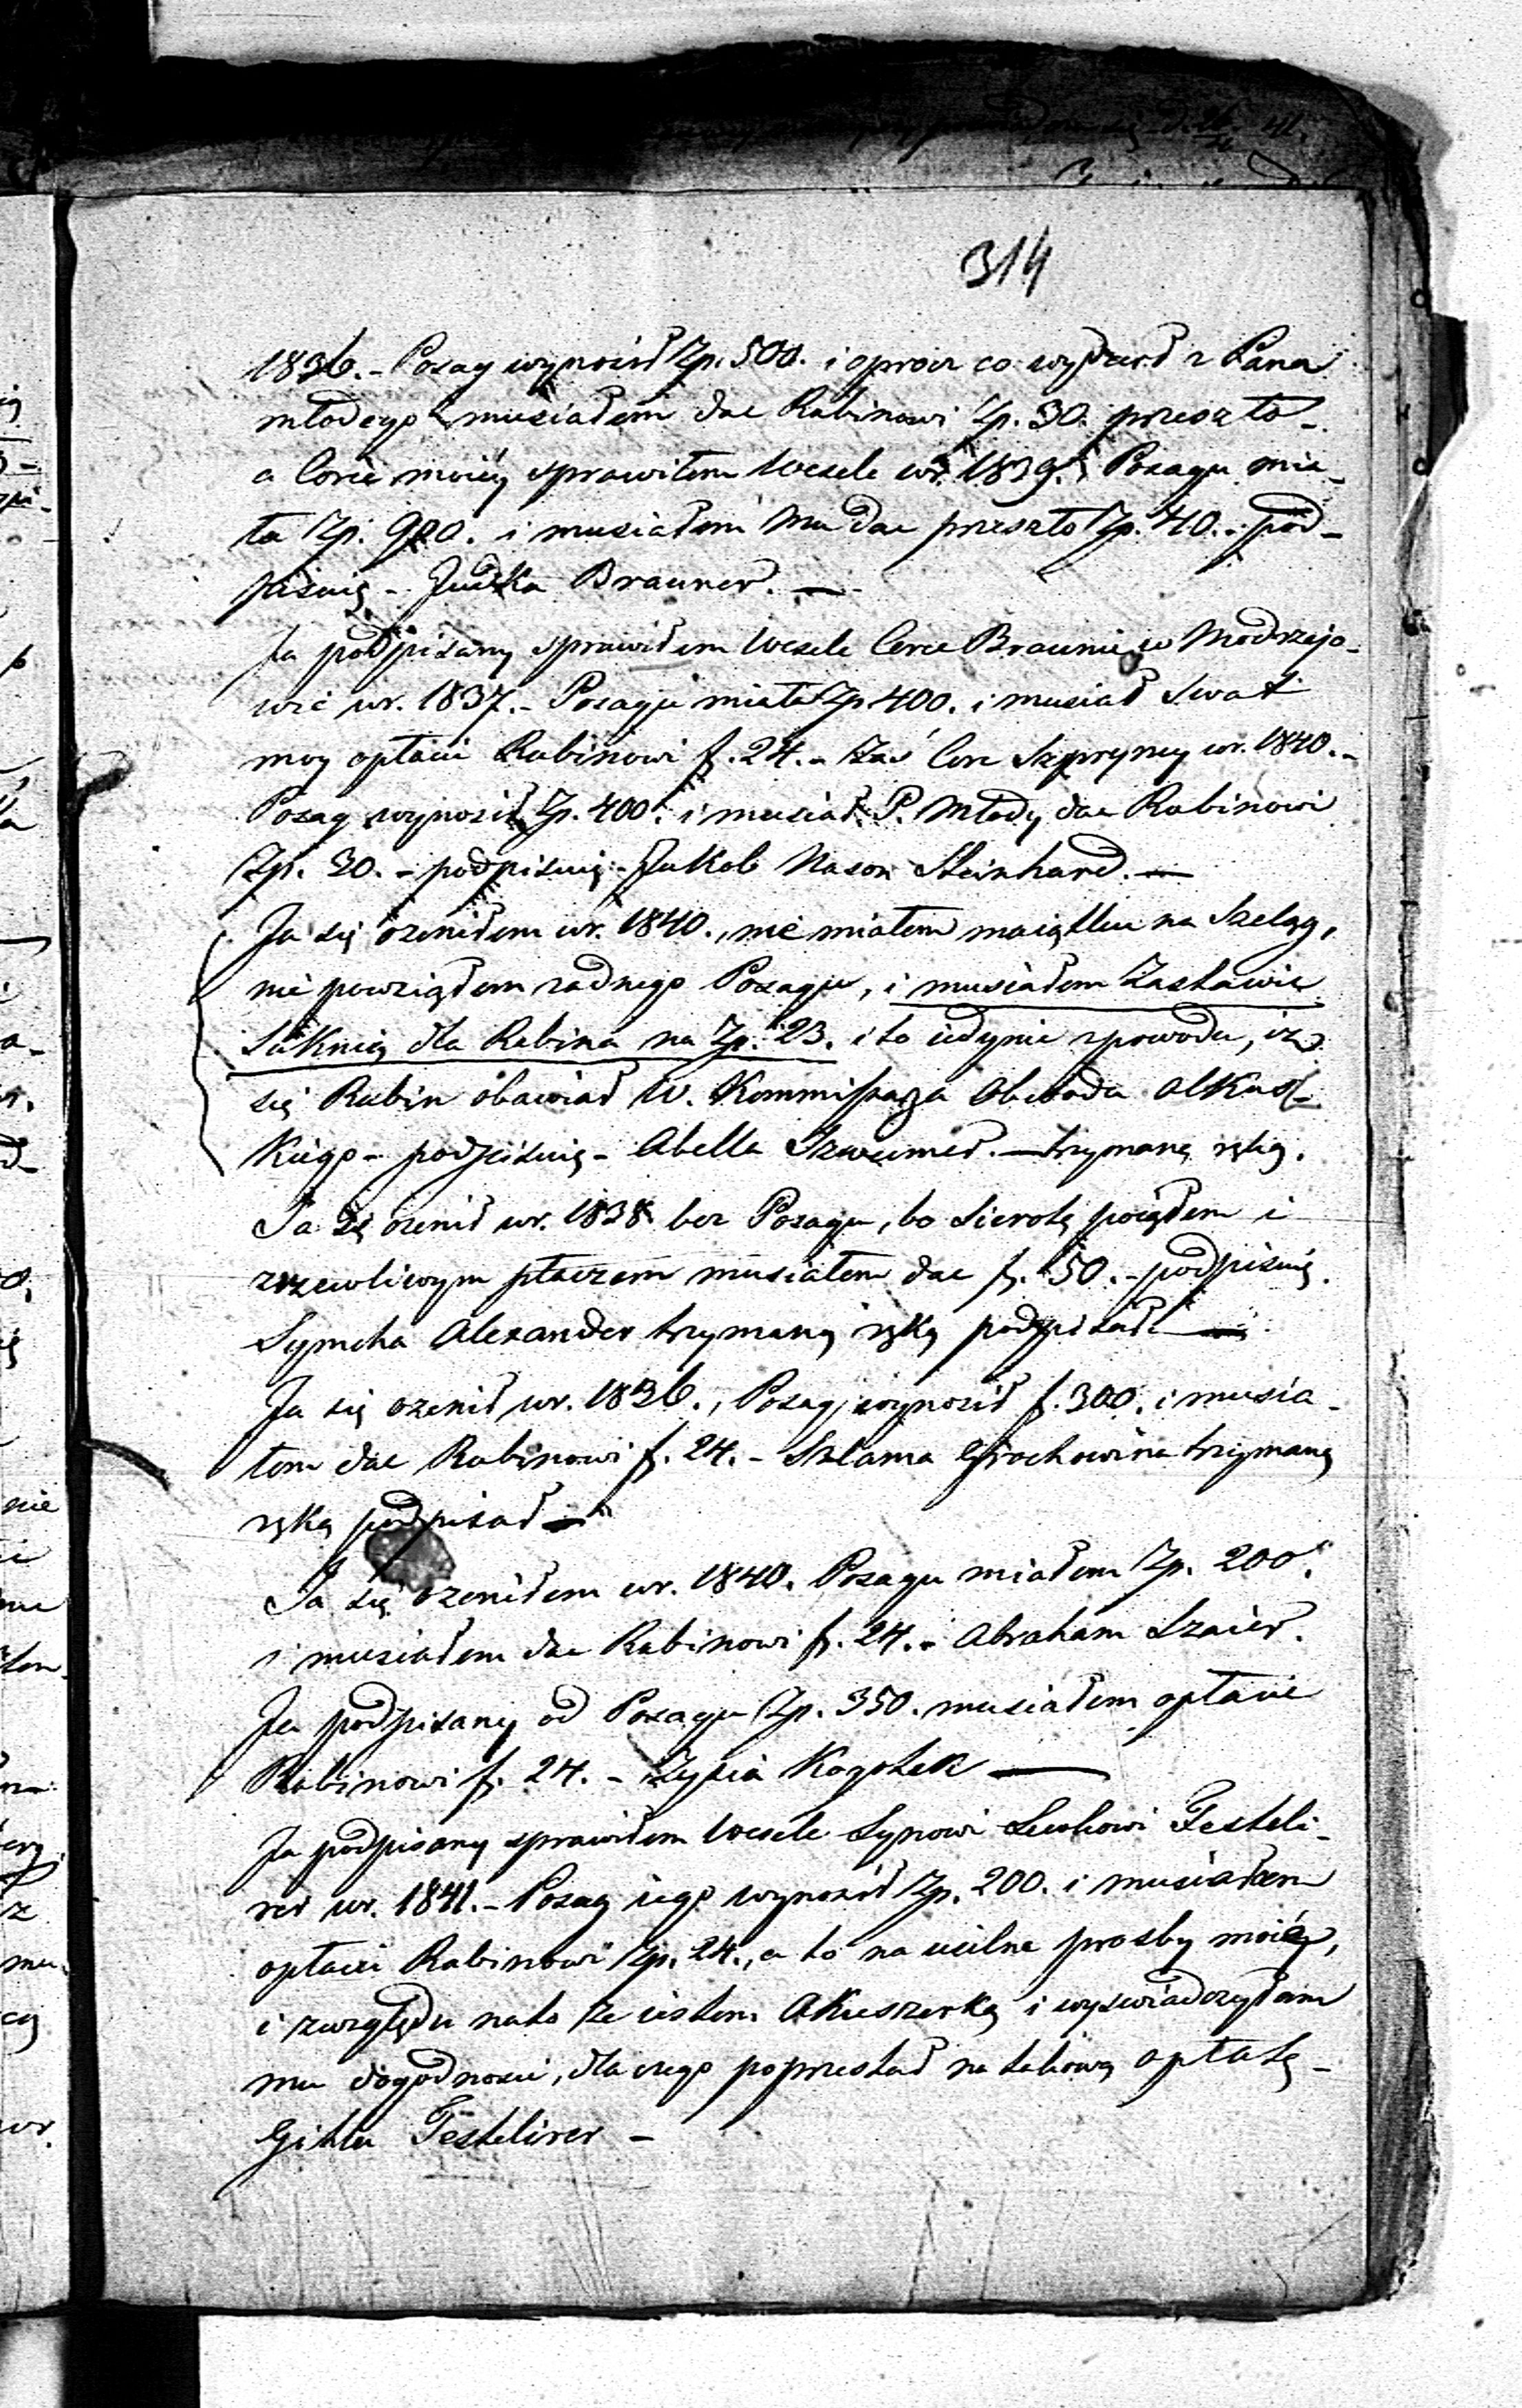 314
1836. - Posag wynosił Zp. 500. i oprocz co wydarł z Pana
młodego musiałem dac Rabinowi Zp. 30. przeszło -
a Corce moiéy sprawiłem Wesele wr. 1839. Posagu mia-
ła Zp. 900. i musiałem mu dac przeszło Zp. 40. - pod-
pisuię - Judka Brauner. -
Ja podpisany sprawiłem Wesele Corce Braunie w Modrzejo-
wie wr. 1837. - Posagu miała Zp 400. i musiał Swat
moy opłacic Rabinowi f. 24. - Zaś Corc Szpryncy wr. 1840. -
Posag wynosił Zp. 400. i musiał P. Młody dac Rabinowi
Zp. 30. - podpisuię - Jakob Nason Steinhard. -
Ja się ozeniłem wr. 1840., nie miałem maiątku na Szeląg,
nie powziąłem zadnego Posagu, i musiałem Zastawic
Suknią dla Rabina na Zp. 23. i to iedynie zpowodu, iz
się Rabin obawiał W. Kommissarza Obwodu Olkus-
kiego - podpisuię - Abella Szwimer. - trzymaną ręką.
Ja się ozenił wr. 1838 bez Posagu, bo Sierotę poiąłem i
zrzewliwym płaczem musiałem dac f. 50. - podpisuię.
Symcha Alexander trzymaną ręką podpisał -
Ja się ozenił wr. 1836., Posag wynosił f. 300. i musia-
łem dac Rabinowi f. 24. - Szlama Grochowina trzymaną
ręką podpisał -
Ja się ozeniłem wr. 1840. Posagu miałem Zp. 200.
i musiałem dac Rabinowi f. 24. - Abraham Szaier.
Ja podpisany od Posagu Zp. 350. musiałem opłacic
Rabinowi f. 24. - Zysia Kogotek -
Ja podpisany sprawiłem Wesele Synowi Lewkowi Festeli-
rer wr. 1841. - Posag iego wynosił Zp. 200. i musiałem
opłacic Rabinowi Zp. 24., a to na usilne prosby moiéy,
i względu nato ze iestem Akuszerką i wyswiadczyłam
mu dogodnosci, dla czego poprzestał na takową opłatę -
Gitla Festelirer -